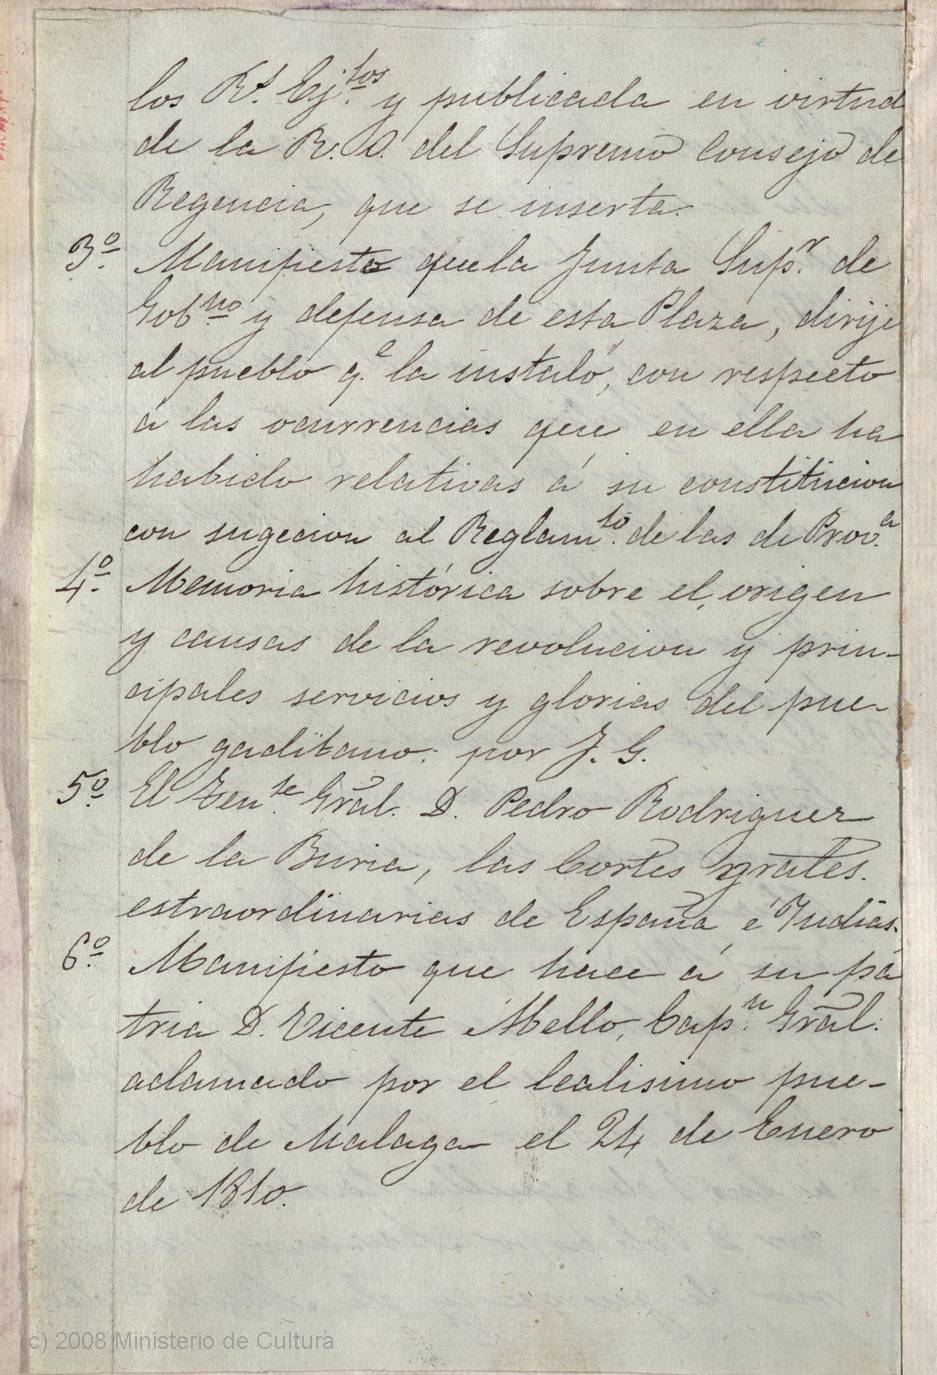 los R.s Ej.tos y publicada en virtud
de la R. O. del Supremo Consejo de
Regencia, que se inserta.
3.º Manifiesto que la Junta Sup.r de
Gob.no y defensa de esta Plaza, dirije
al pueblo q.e la instaló, con respecto
a las ocurrencias que en ella ha
habido relativas á su constitucion
con sugecion al Reglam.to de las de Prov.a
4.º Memoria histórica sobre el origen
y causas de la revolucion y prin-
cipales servicios y glorias del pue-
blo gaditano: por J. G.
5.º El Ten.te Gral. D. Pedro Rodriguez
de la Buria, las Cortes grales.
estraordinarias de España é Indias.
6.º Manifiesto que hace á su pá
tria D. Vicente Mello, Cap.n Gral.
aclamado por el lealisimo pue-
blo de Malaga el 24 de Enero
de 1810.
(c) 2008 Ministerio de Cultura